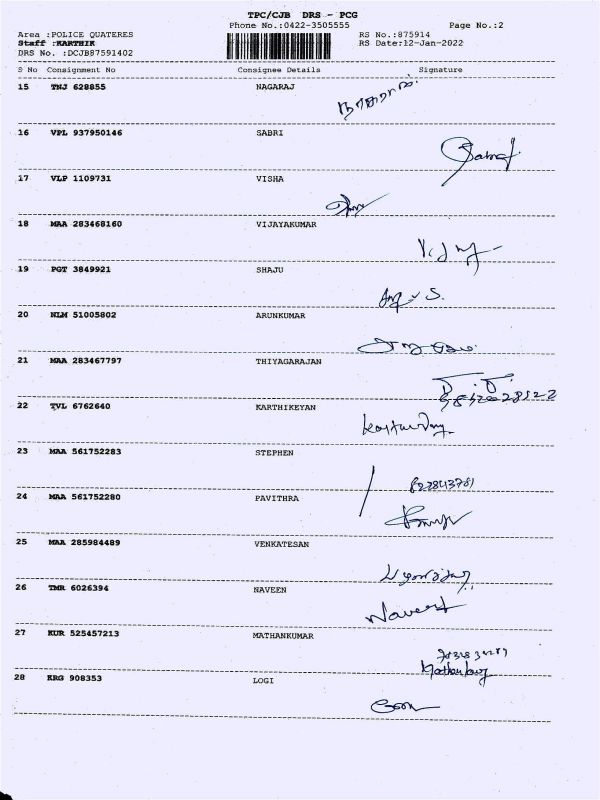 TPC/CJB DRS - PCG
Phone No.:0422-3505555 Page No.:2
Area :POLICE QUATERES RS No.:875914
Staff :KARTHIK RS Date:12-Jan-2022
DRS No. :DCJB87591402
S No Consignment No Consignee Details Signature
15 TNJ 628855 NAGARAJ நாகராஜ்
16 VPL 937950146 SABRI
17 VLP 1109731 VISHA
18 MAA 283468160 VIJAYAKUMAR
19 PGT 3849921 SHAJU
20 NLM 51005802 ARUNKUMAR
21 MAA 283467797 THIYAGARAJAN
22 TVL 6762640 KARTHIKEYAN
23 MAA 561752283 STEPHEN
24 MAA 561752280 PAVITHRA
25 MAA 285984489 VENKATESAN
26 TMR 6026394 NAVEEN Naveen
27 KUR 525457213 MATHANKUMAR
28 KRG 908353 LOGI